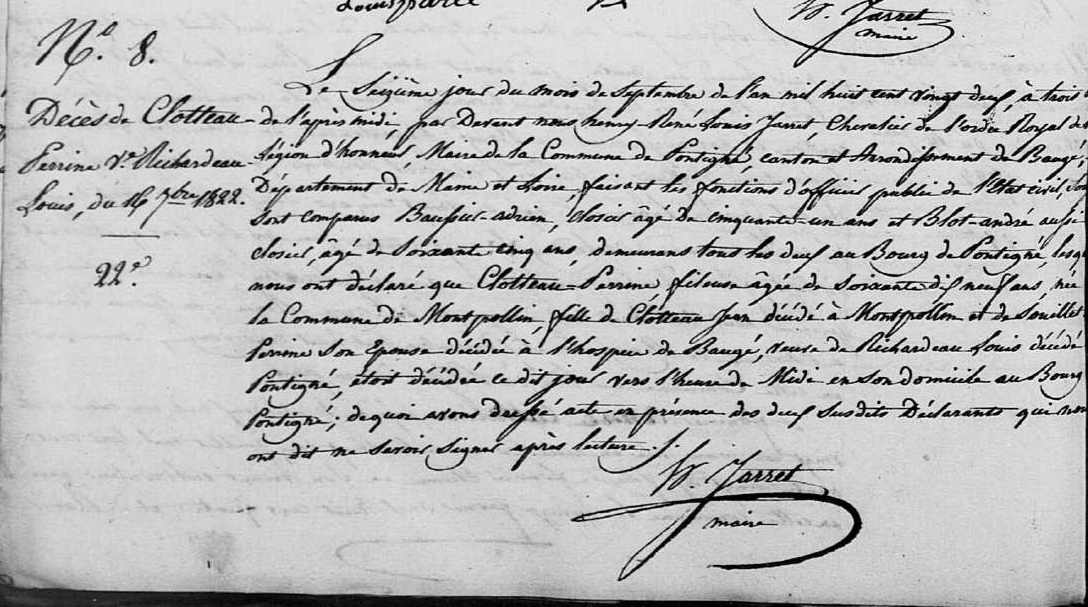 Louis
H. Jarret
maire
N.º 8.
Décès de Clotteau
Perrine Vᵉ Richardeau
Louis, du 16 7bre 1822.
22e
Le Seizième jour du mois de Septembre de l'an mil huit cent vingt deux, à trois
de l'après midi, par Devant nous henry René Louis Jarret, Chevalier de l'ordre Royal de
Légion d'honneur, Maire de la Commune de Pontigné, canton et Arrondissement de Baugé,
Département de Maine et Loire, faisant les fonctions d'officier public de l'Etat civil,
sont comparus Baussier adrien, closier âgé de cinquante un ans et Blot andré aussi
closier, âgé de Soixante cinq ans, demeurans tous les deux au Bourg de Pontigné,
nous ont déclaré que Clotteau Perrine, fileuse âgée de soixante dix neuf ans, née
la Commune de Montpollin, fille de Clotteau Jean décédé à Montpollin et de
Perrine Son Epouse décédée à l'hospice de Baugé, veuve de Richardeau Louis décédé
Pontigné, étoit décédée ce dit jour vers l'heure de Midi en son domicile au Bourg
Pontigné; de quoi avons dressé acte en présence des deux susdits Déclarants qui
ont dit ne savoir signer après lecture /.
H. Jarret
maire